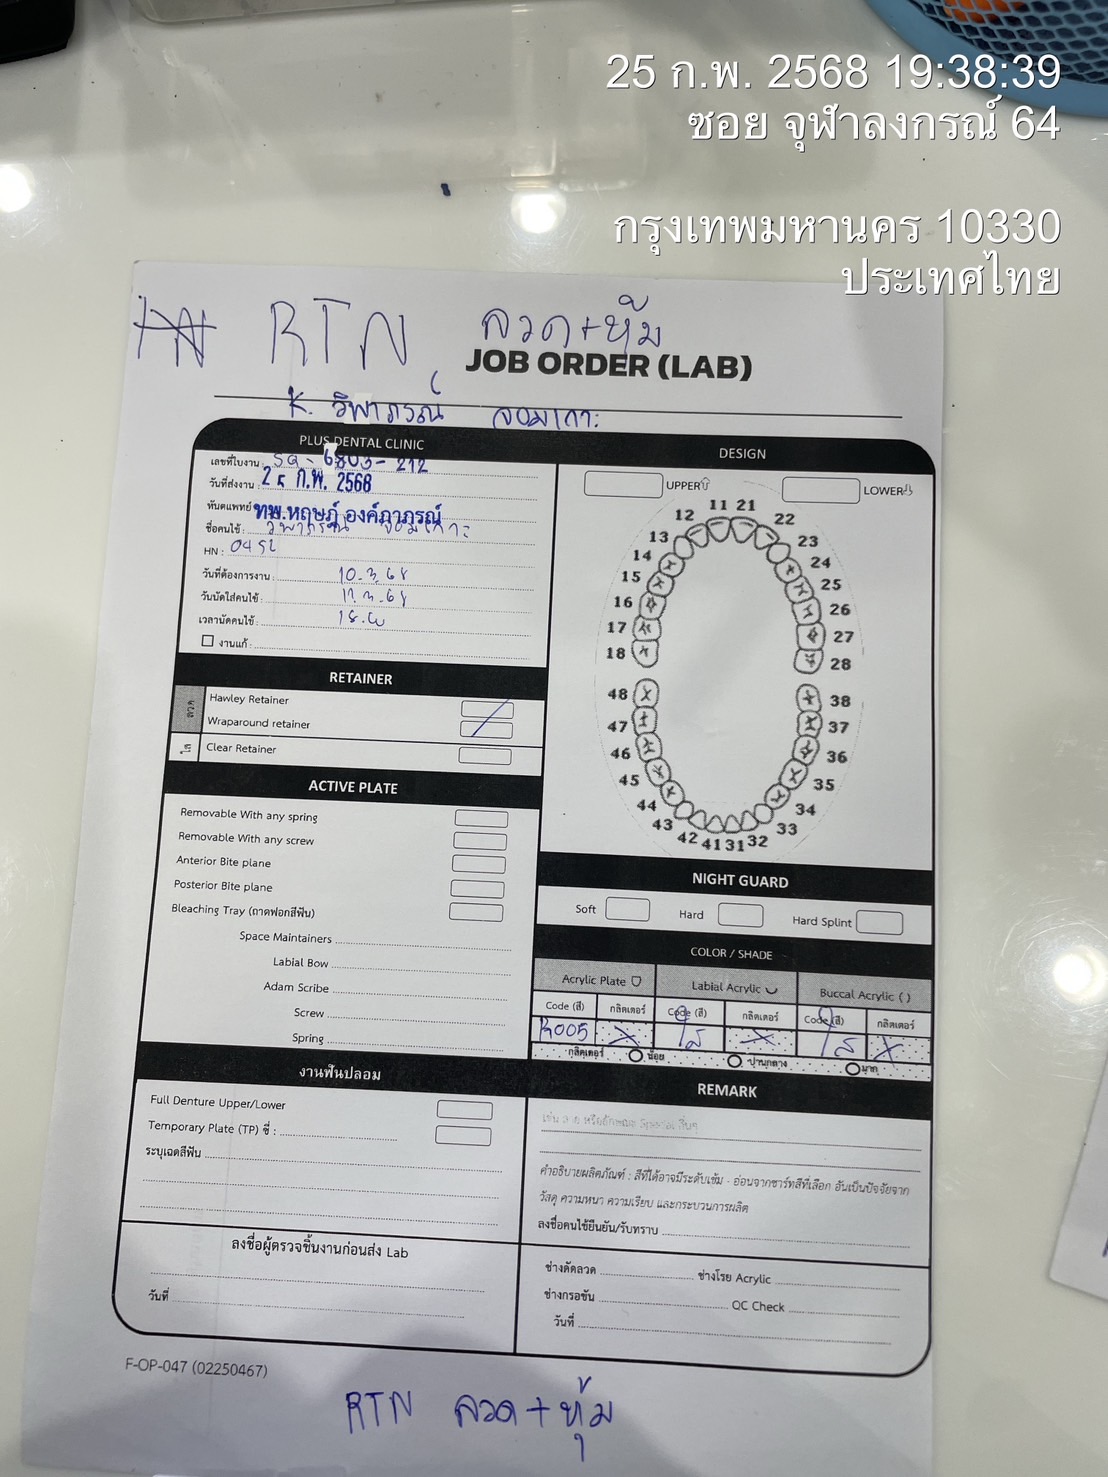 25 ก.พ. 2568 19:38:39
ซอย จุฬาลงกรณ์ 64
กรุงเทพมหานคร 10330
ประเทศไทย
RTN ลวด+หุ้ม
JOB ORDER (LAB)
K. วิพาภรณ์ จอมเกาะ
PLUS DENTAL CLINIC
เลขที่ใบงาน : SQ - 6803 - 212
วันที่ส่งงาน : 25 ก.พ. 2568
ทันตแพทย์ ทพ.หฤษฎ์ องค์ภาภรณ์
ชื่อคนไข้ : วิพาภรณ์ จอมเกาะ
HN :
วันที่ต้องการงาน : 10.3.68
วันนัดใส่คนไข้ :
เวลานัดคนไข้ :
งานแก้ :
RETAINER
ลวด
Hawley Retainer
Wraparound retainer
ใส
Clear Retainer
ACTIVE PLATE
Removable With any spring
Removable With any screw
Anterior Bite plane
Posterior Bite plane
Bleaching Tray (ถาดฟอกสีฟัน)
Space Maintainers
Labial Bow
Adam Scribe
Screw
Spring
งานฟันปลอม
Full Denture Upper/Lower
Temporary Plate (TP) ซี่ :
ระบุเฉดสีฟัน
ลงชื่อผู้ตรวจชิ้นงานก่อนส่ง Lab
วันที่
DESIGN
UPPER LOWER
11 21
12 22
13 23
14 24
15 25
16 26
17 27
18 28
48 38
47 37
46 36
45 35
44 34
43 33
42 41 31 32
NIGHT GUARD
Soft Hard Hard Splint
COLOR / SHADE
Acrylic Plate Labial Acrylic Buccal Acrylic ( )
Code (สี) กลิตเตอร์ Code (สี) กลิตเตอร์ Code (สี) กลิตเตอร์
R005 X ใส X ใส X
กลิตเตอร์ น้อย ปานกลาง มาก
REMARK
เช่น ลาย หรือลักษณะ Special อื่นๆ
คำอธิบายผลิตภัณฑ์ : สีที่ได้อาจมีระดับเข้ม - อ่อนจากชาร์ทสีที่เลือก อันเป็นปัจจัยจาก
วัสดุ ความหนา ความเรียบ และกระบวนการผลิต
ลงชื่อคนไข้ยืนยัน/รับทราบ
ช่างดัดลวด ช่างโรย Acrylic
ช่างกรอขัน QC Check
วันที่
F-OP-047 (02250467)
RTN ลวด+หุ้ม